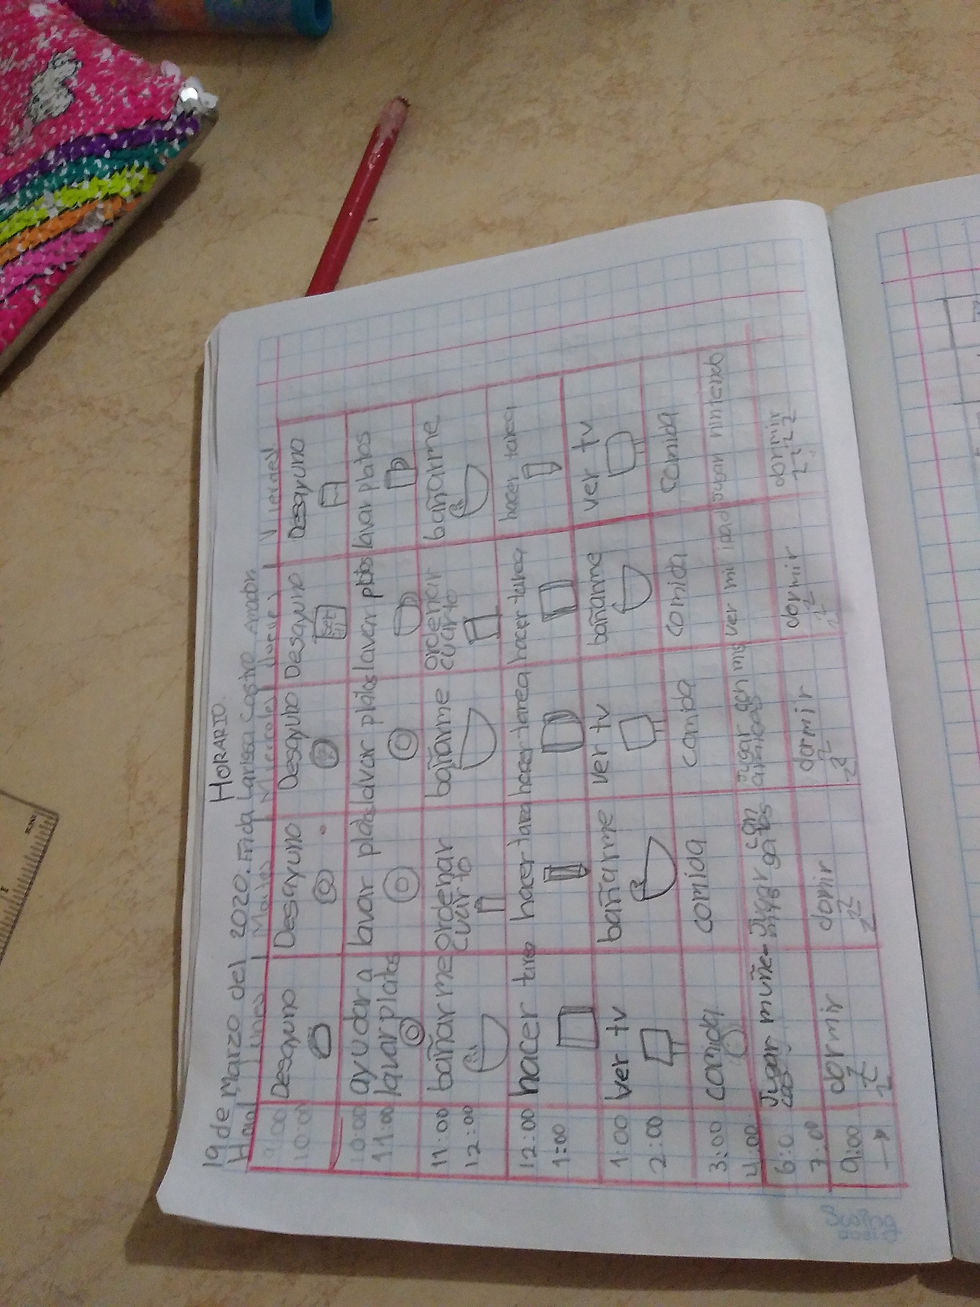 HORARIO
19 de Marzo del 2020. Frida Larissa Castro Amador
Hora Lunes Martes Miercoles Jueves Viernes
9:00 10:00 Desayuno Desayuno Desayuno Desayuno Desayuno
10:00 11:00 ayudar a lavar platos lavar platos lavar platos lavar platos lavar platos
11:00 12:00 bañarme ordenar cuarto bañarme ordenar cuarto bañarme
12:00 1:00 hacer tarea hacer tarea hacer tarea hacer tarea hacer tarea
1:00 2:00 ver tv bañarme ver tv bañarme ver tv
3:00 4:00 comida comida comida comida comida
6:0 7:00 Jugar muñecas Jugar con mis gatos Jugar con mis amigas ver mi ipad Jugar nintendo
9:00 dormir domir dormir dormir dormir
zzz zzz zzz zzz zzz